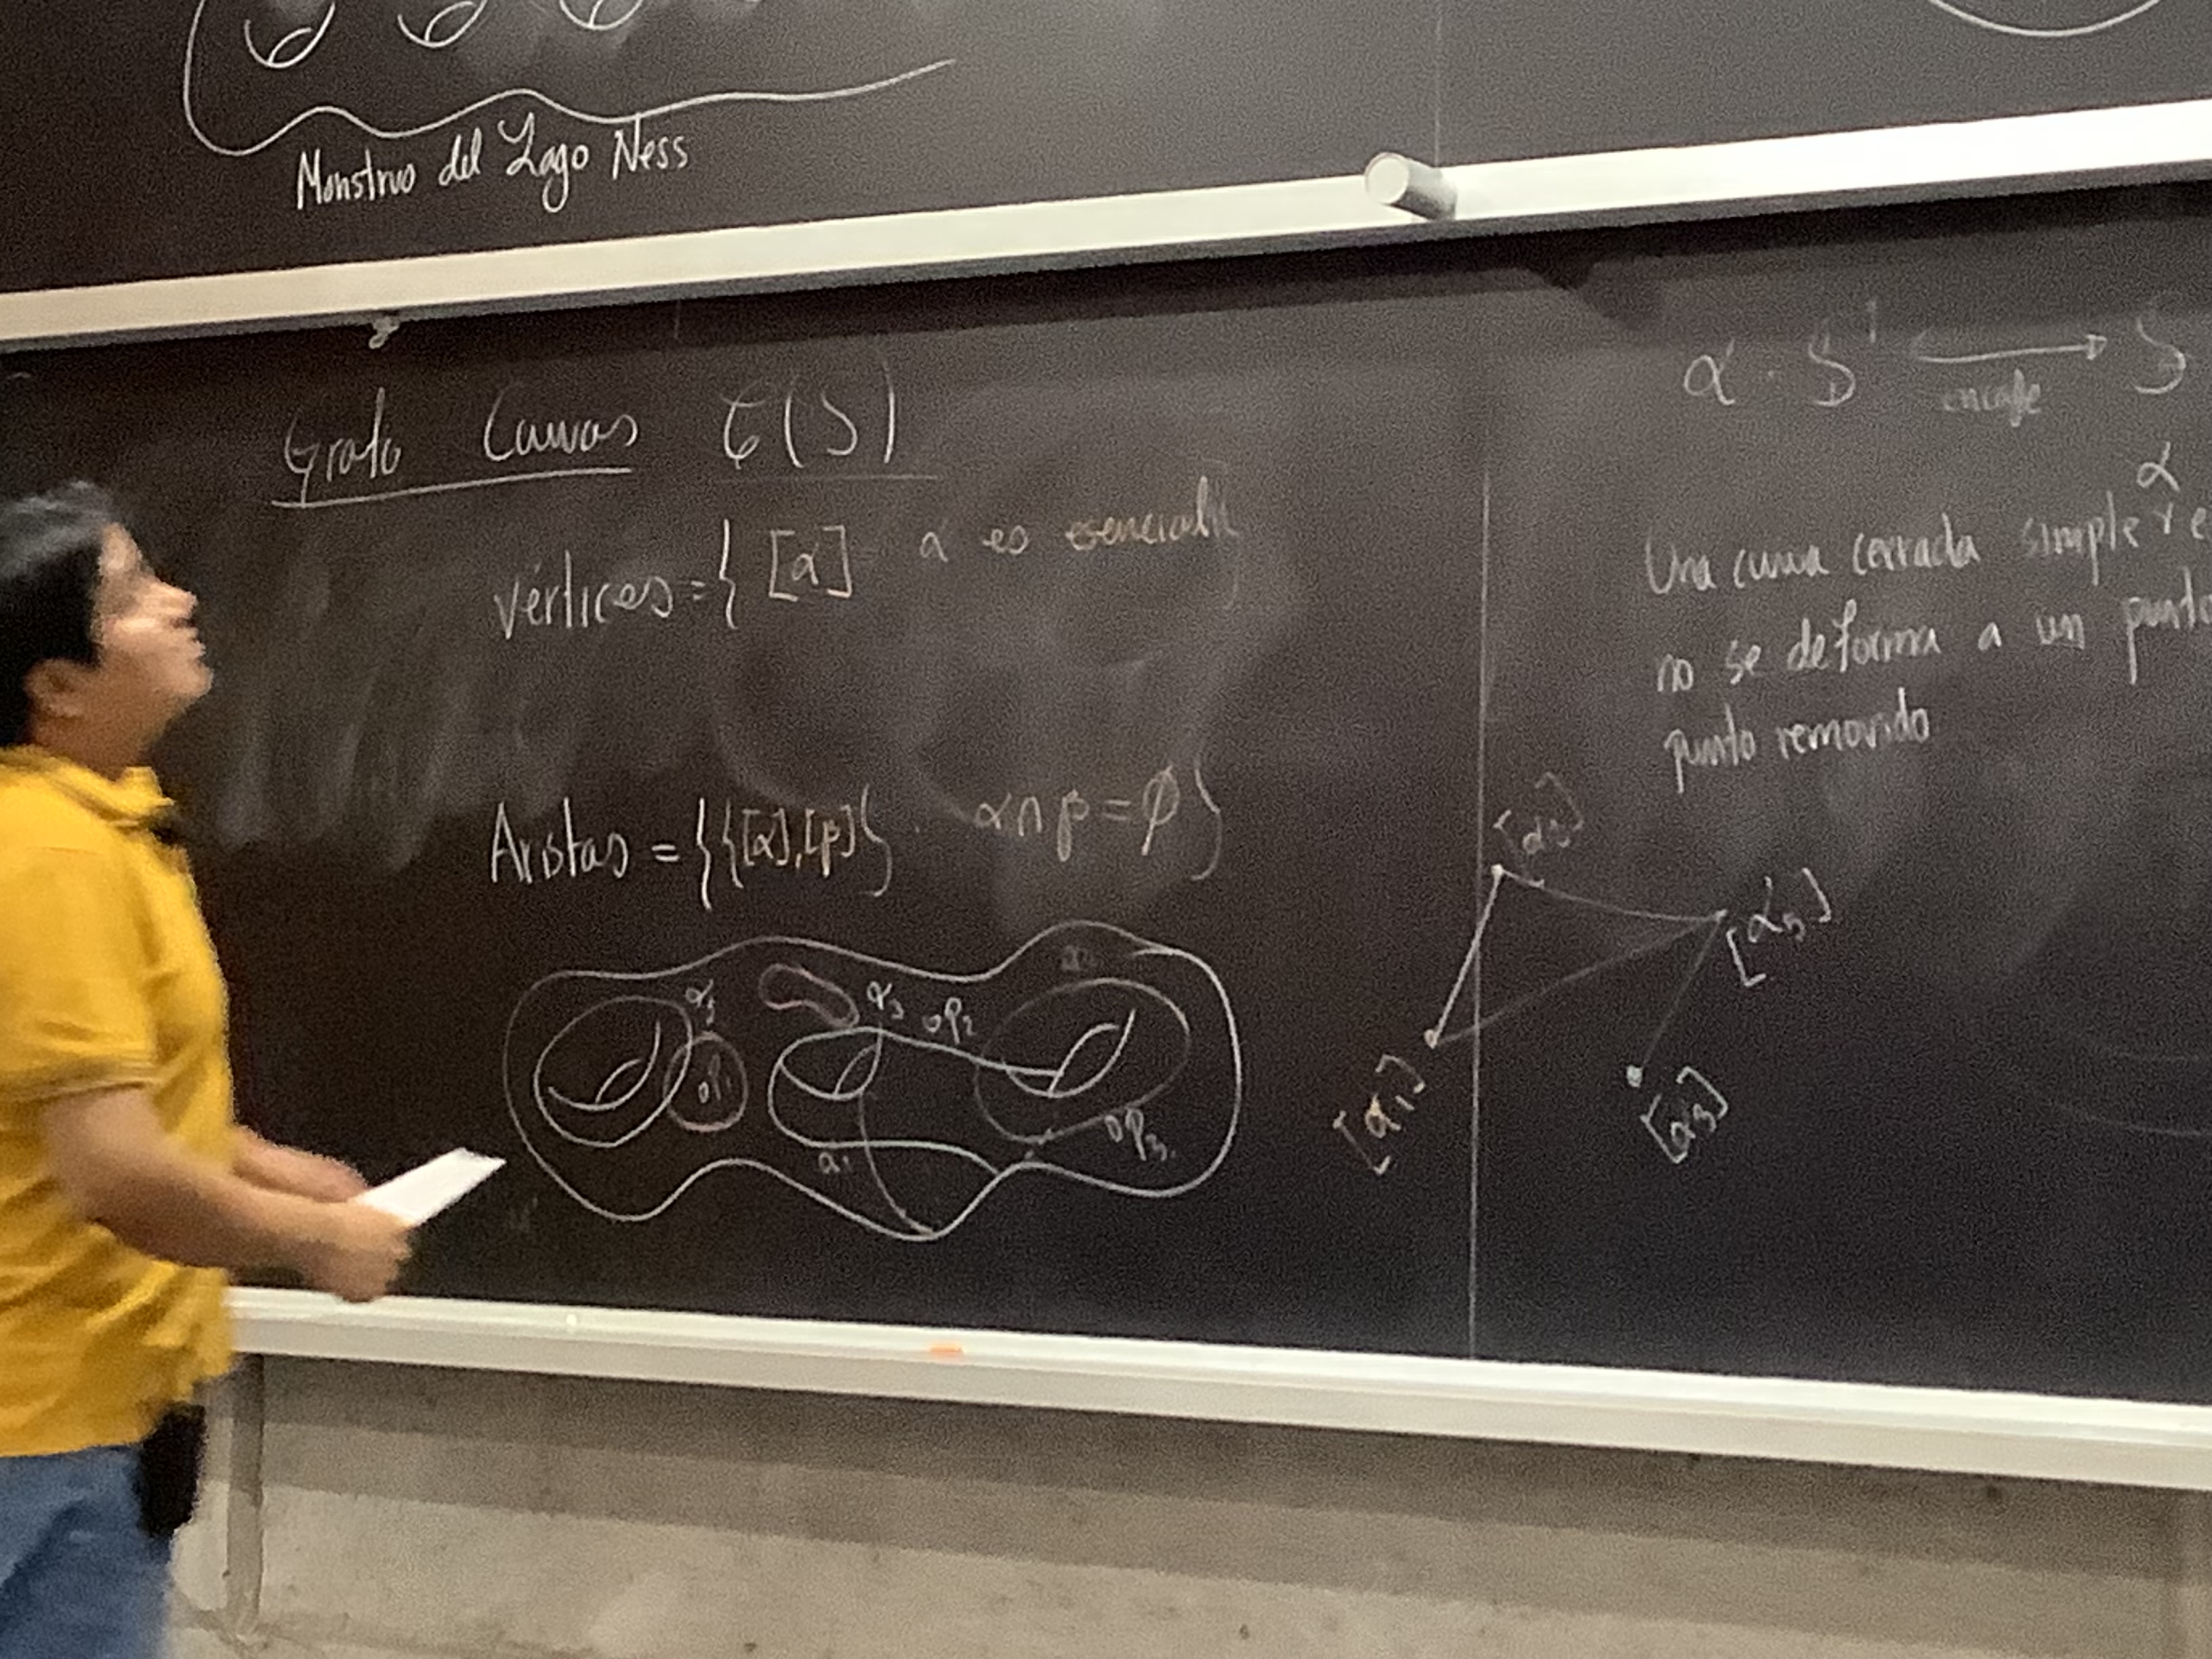 Monstruo del Lago Ness
Grafo Curvas C(S)
vértices = { [α] α es esencial }
Aristas = { {[α],[β]} . α∩β = ∅ }
α5
α3
op2
op1
op3
α1
α : S¹ → S
encaje
α
Una curva cerrada simple
no se deforma a un punto
punto removido
[α2]
[α5]
[α1]
[α3]